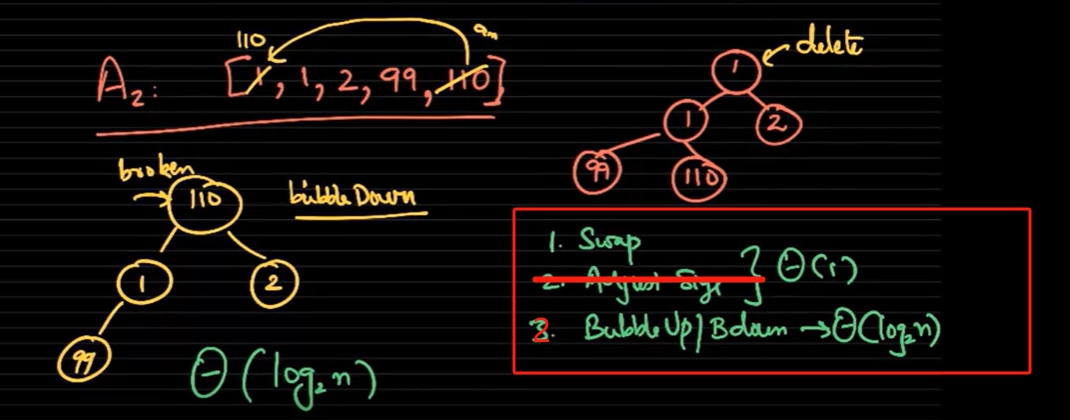 110
am
A₂: [1, 1, 2, 99, 110]
delete
1
1
2
99
110
broken
110
bubbleDown
1
2
99
Θ(log₂n)
1. Swap
2. Adjust Size } Θ(1)
3. BubbleUp|Bdown → Θ(log₂n)